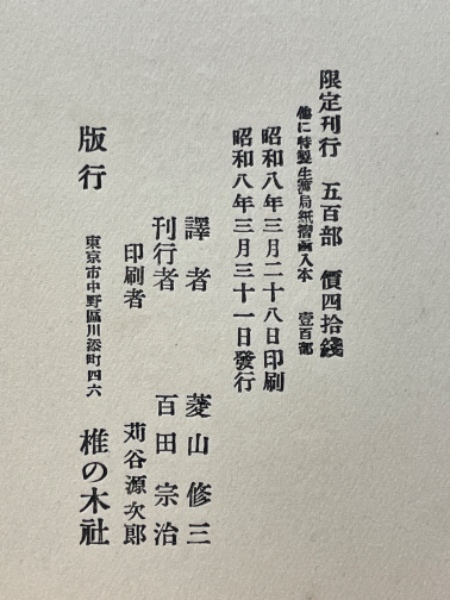 限定刊行 五百部 價四拾錢
他に特製生漉局紙摺函入本 壹百部
昭和八年三月二十八日印刷
昭和八年三月三十一日發行
譯者 菱山修三
刊行者 百田宗治
印刷者 苅谷源次郎
版行 東京市中野區川添町四六 椎の木社